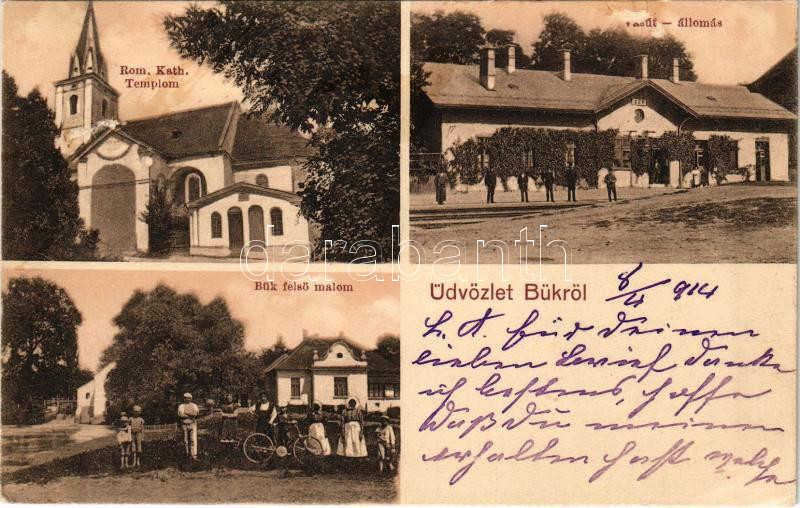 Rom. Kath.
Templom
Vasút – állomás
BÜK
Bük felső malom
Üdvözlet Bükről
8/4 914
L. A. für Deinen
lieben Brief danke
ich bestens, hoffe
daß Du meinen
erhalten hast welche
darabanth